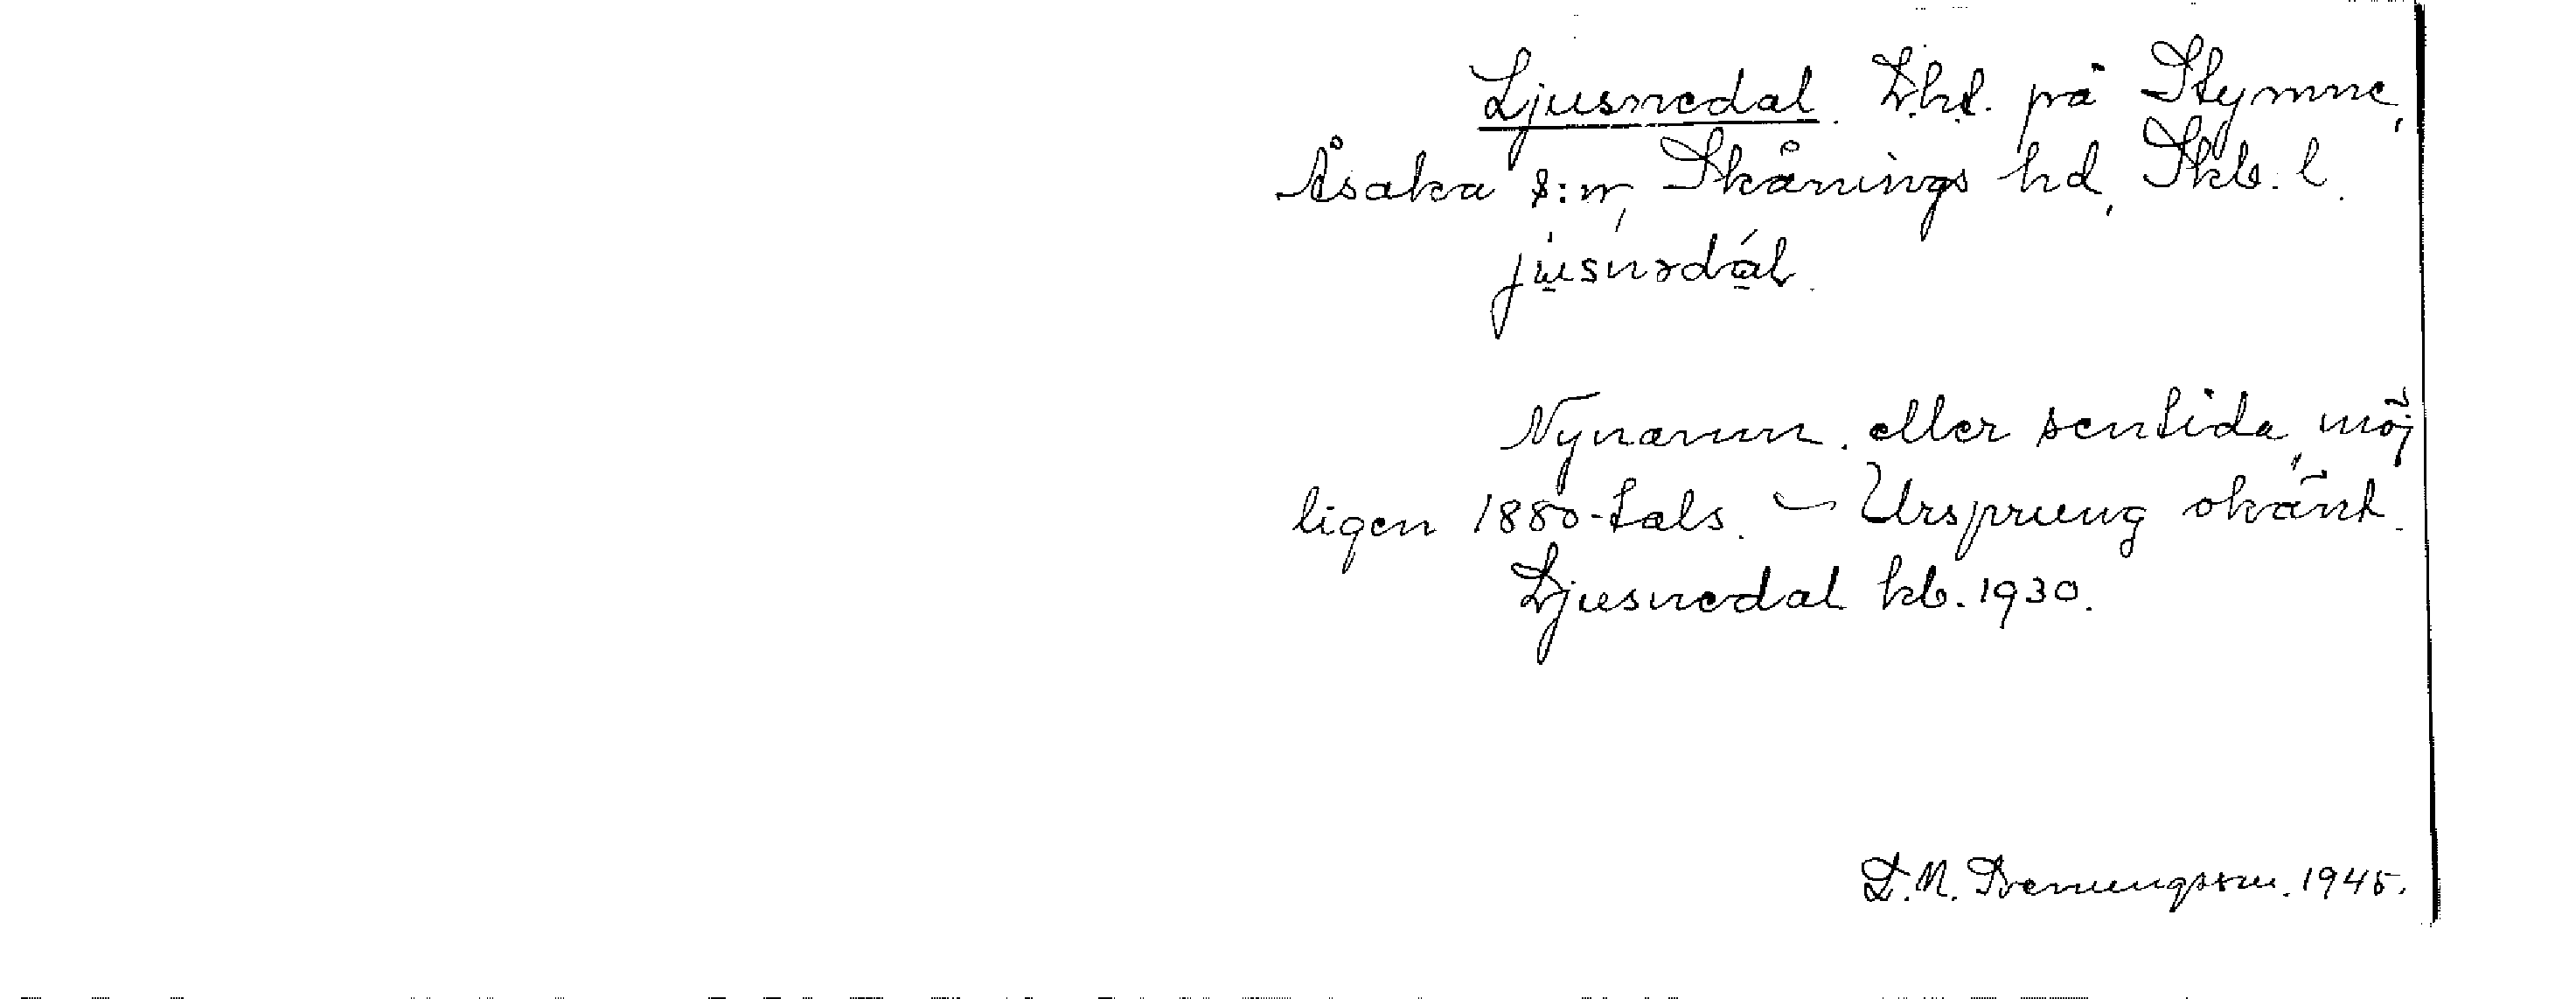 Ljusnedal. Lht. på Stymne,
Åsaka s:n, Skånings hd, Skb. l.
jusnədal.
Nynamn. eller sentida, möj
ligen 1880-tals. – Ursprung okänt.
Ljusnedal kb. 1930.
L. M. 1945.